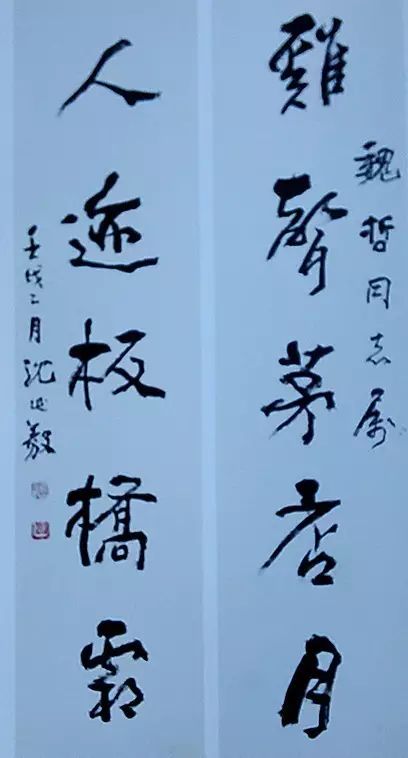 魏哲同志属
雞聲茅店月
人迹板橋霜
壬戌二月沈延毅